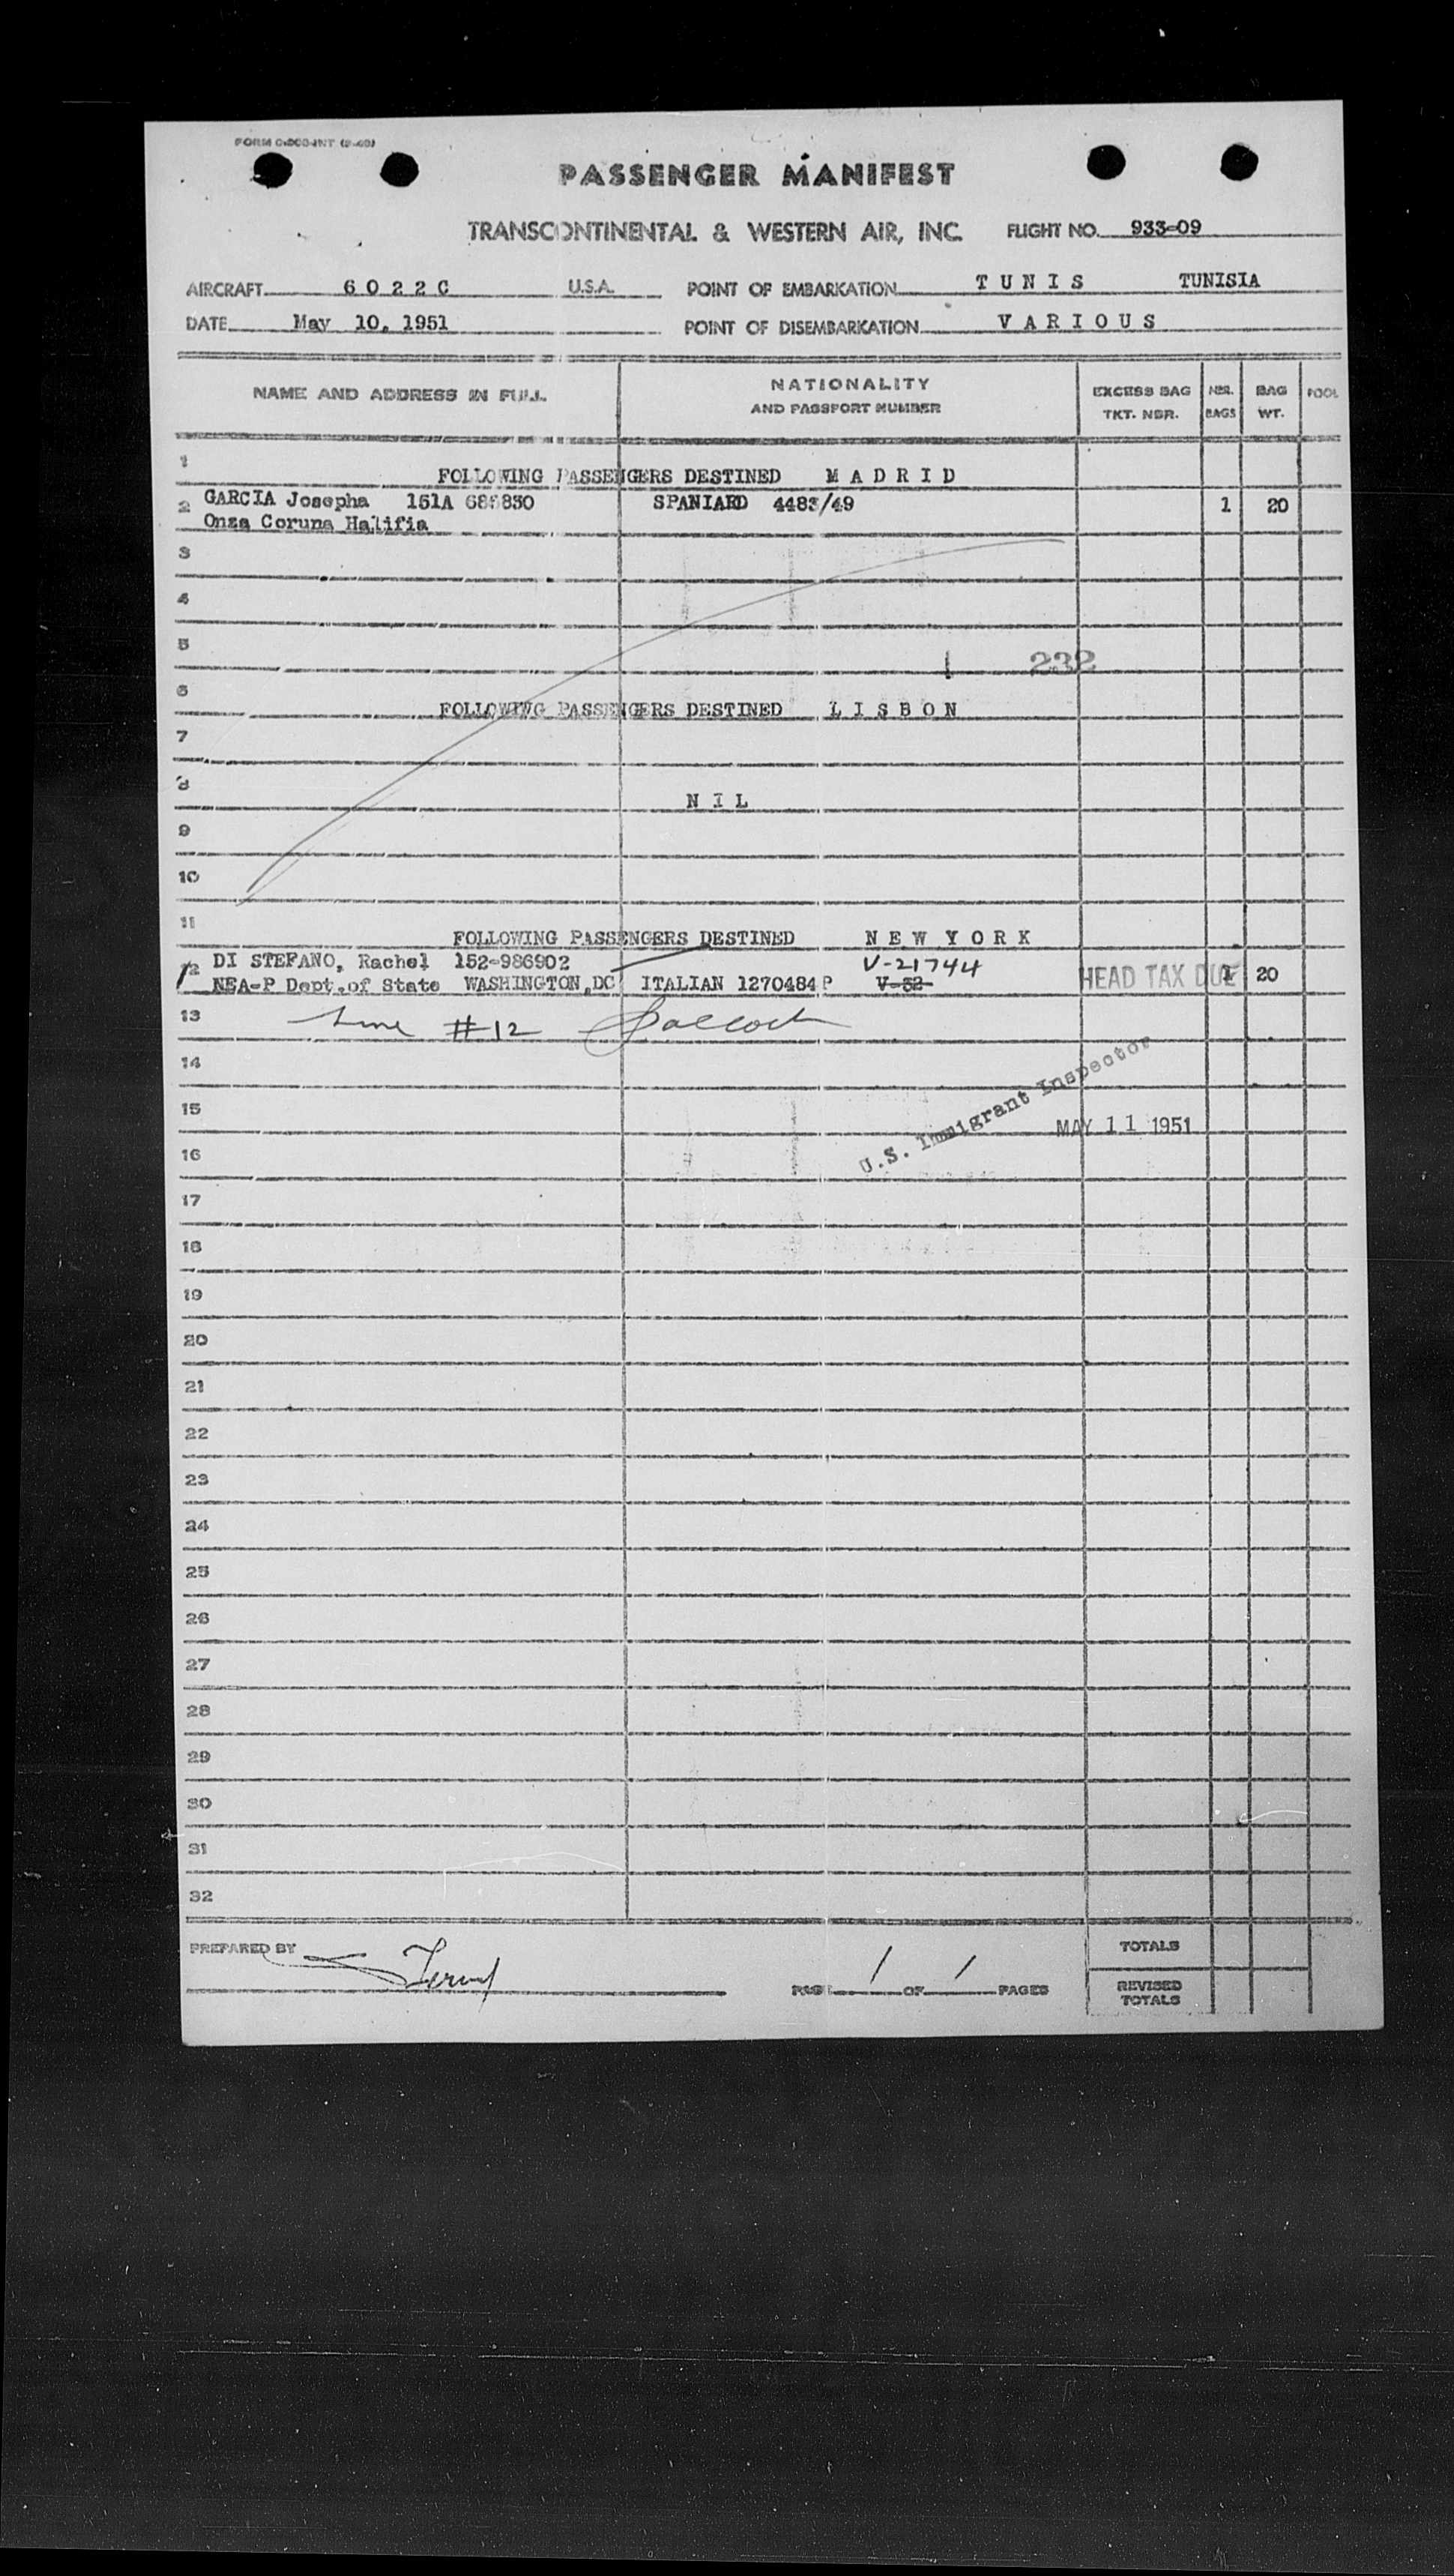 PASSENGER MANIFEST
TRANSCONTINENTAL & WESTERN AIR, INC. FLIGHT NO. 933-09
AIRCRAFT 6022C U.S.A. POINT OF EMBARKATION TUNIS TUNISIA
DATE May 10, 1951 POINT OF DISEMBARKATION VARIOUS
NAME AND ADDRESS IN FULL NATIONALITY AND PASSPORT NUMBER EXCESS BAG TKT. NBR. NBR. BAGS BAG WT. POOL
1 FOLLOWING PASSENGERS DESTINED MADRID
2 GARCIA Josepha 151A SPANIARD 4483/49 1 20
Onza Coruna Halifia
3
4
5
232
6 FOLLOWING PASSENGERS DESTINED LISBON
7
8 NIL
9
10
11 FOLLOWING PASSENGERS DESTINED NEW YORK
12 DI STEFANO, Rachel 152-986902 V-21744
NEA-P Dept.of State WASHINGTON,DC ITALIAN 1270484P V-52 HEAD TAX DUE 1 20
13 Line #12
14
U.S. Immigrant Inspector
15 MAY 11 1951
16
17
18
19
20
21
22
23
24
25
26
27
28
29
30
31
32
PREPARED BY
PAGE 1 OF 1 PAGES
TOTALS
REVISED TOTALS